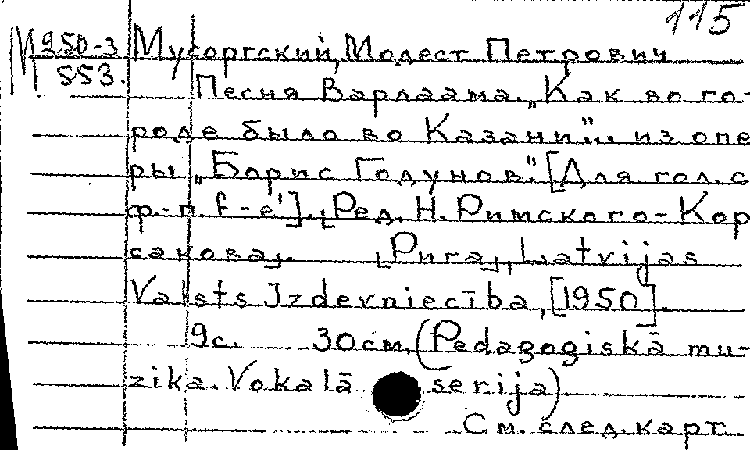 115
М 950-3 Мусоргский, Модест Петрович
553.
Песня Варлаама. „Как во го-
роде было во Казани"... из опе
ры „Борис Годунов". [Для гол. с
ф.-п. f - e¹]. [Ред. Н. Римского-Кор
сакова]. [Рига], Latvijas
Valsts Izdevniecība, [1950].
9с. 30см. (Pedagoģiskā mu-
zika. Vokalā serija)
См. след. карт